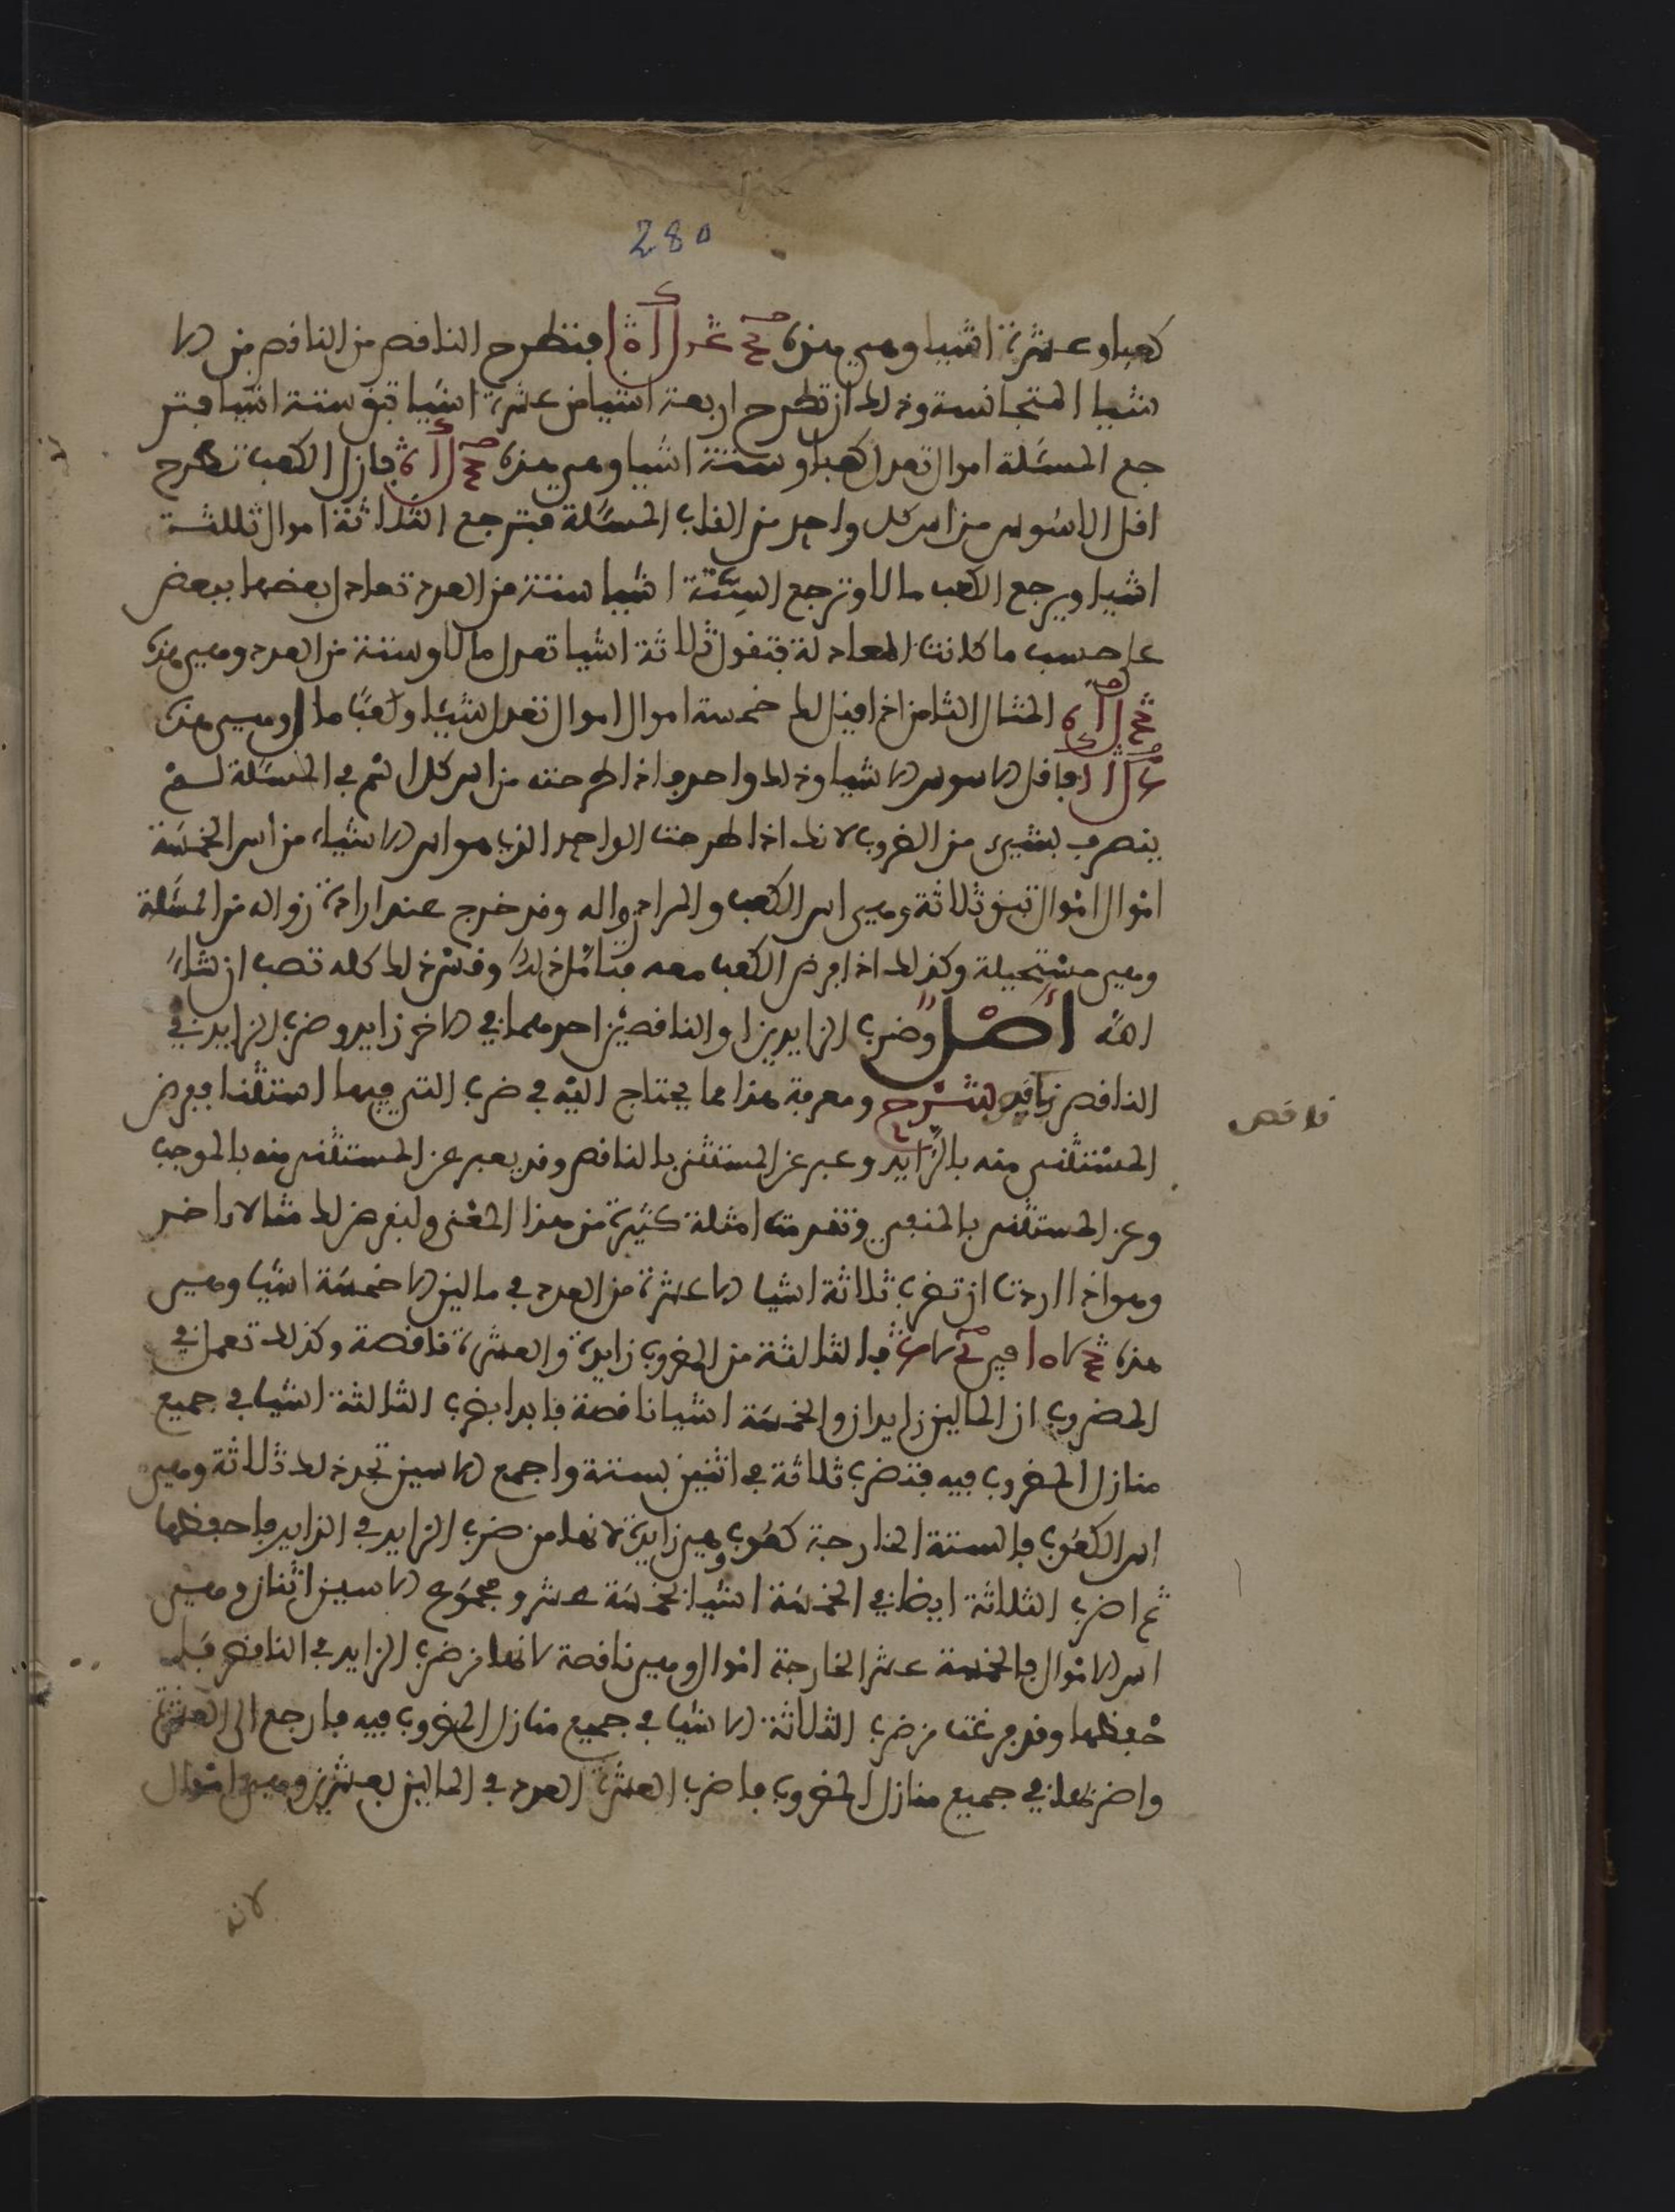 280
كعبا وعشرة اشيا وهي هذه فتطرح الناقص من الناقص من الا
شيا المتجانسة وذلك ان تطرح اربعة اشيا من عشرة اشيا تبق ستة اشيا فتر
جع المسئلة اموال تعدل كعبا وستة اشيا وهي هذه فازل الكعب تطرح
اقل الاسوس من اس كل واحد من القاب المسئلة فترجع الثلاثة اموال ثلثة
اشيا ويرجع الكعب مالا وترجع الستة اشيا ستة من العدد تعادل بعضها ببعض
على حسب ما كانت المعادلة فتقول ثلاثة اشيا تعدل مالا وستة من العدد وهي هذه
المثال الثامن اذا قيل لك خمسة اموال اموال تعدل شيئا وكعبا مال وهي هذه
فاقل الاسوس الاشيا وذلك واحد فاذا طرحته من اس كل اسم في المسئلة لم
ينصرف بشيء من الضروب لانك اذا طرحت الواحد الذي هو اس الاشياء من اس الخمسة
اموال اموال تبق ثلاثة وهي اس الكعب والمراد زواله وقد خرج عند ارادة زواله من المسئلة
وهي مستحيلة وكذلك اذا فرض الكعب معه فتامل ذلك وقس ذلك كله تصب ان شاء
الله اصل وضرب الزايدين او الناقصين احدهما في الاخر زايد وضرب الزايد في
الناقص ناقص لشرح ومعرفة هذا مما يحتاج اليه في ضرب التي فيها استثنا فعرض
المستثنى منه بالزايد وعبر عن المستثنى بالناقص وقد يعبر عن المستثنى منه بالموجب
وعن المستثنى بالمنفي وتقدمت امثلة كثيرة من هذا المعنى ولنفرض لك مثالا اخر
وهو اذا اردت ان تضرب ثلاثة اشيا الا عشرة من العدد في مالين الا خمسة اشيا وهي
هذه في فالثلاثة من المضروب زايدة والعشرة ناقصة وكذلك تعمل في
المضروب ان المالين زايدان والخمسة اشيا ناقصة فابدا بضرب الثلاثة اشيا في جميع
منازل المضروب فيه فتضرب ثلاثة في اثنين بستة واجمع الاسين تجد ذلك ثلاثة وهي
اس الكعوب فالستة الخارجة كعوب وهي زايدة لانها من ضرب الزايد في الزايد فاحفظها
ثم اضرب الثلاثة ايضا في الخمسة اشيا بخمسة عشر ومجموع الاسين اثنان وهي
اس الاموال فالخمسة عشر الخارجة اموال وهي ناقصة لانها من ضرب الزايد في الناقص فا
حفظها وقد فرغت من ضرب الثلاثة الاشيا في جميع منازل المضروب فيه فارجع الى العشرة
واضربها في جميع منازل المضروب فاضرب العشرة العدد في المالين بعشرين وهي اموال
ناقص
لانه